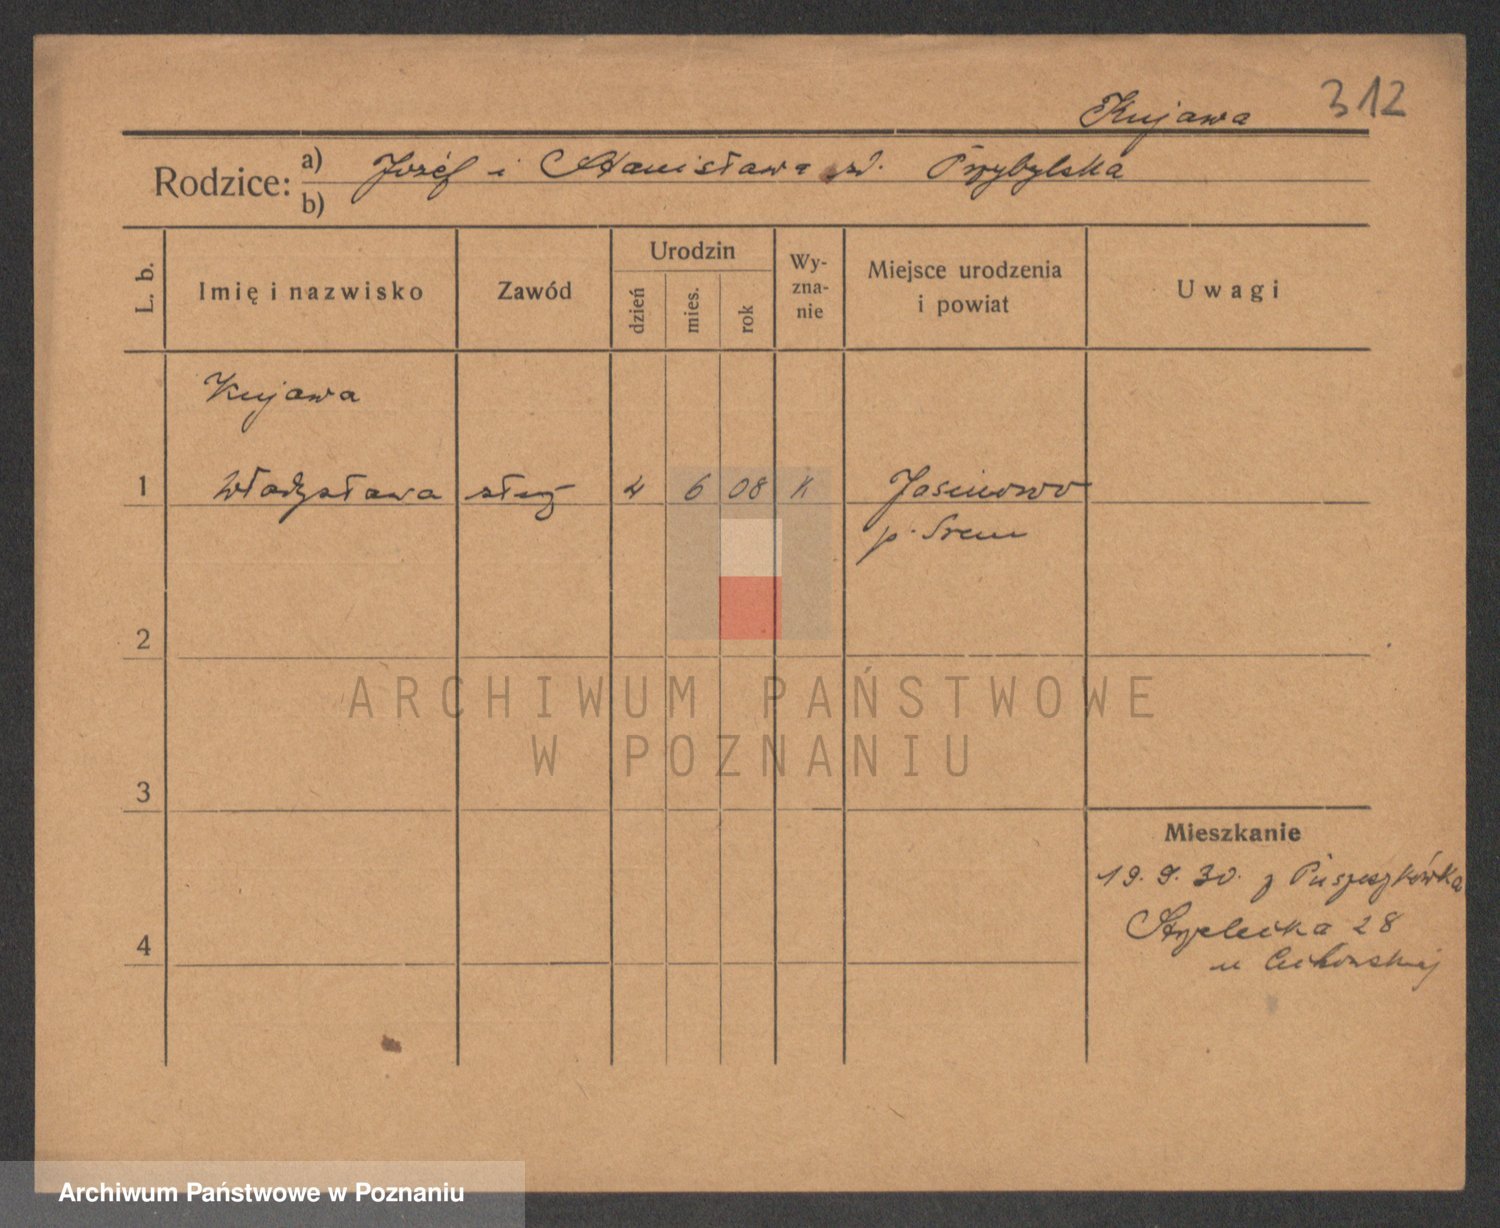 312
Kujawa
Rodzice: a) Józef i Stanisława zd. Przybylska
b)
L. b. Imię i nazwisko Zawód Urodzin dzień mies. rok Wy-zna-nie Miejsce urodzenia i powiat Uwagi
Kujawa
1 Władysława służ 4 6 08 K Jasinowo
p. Srem
2
ARCHIWUM PAŃSTWOWE
W POZNANIU
3
Mieszkanie
19. 9. 30. z Puszczykówka
Strzelecka 28
4
u
Archiwum Państwowe w Poznaniu